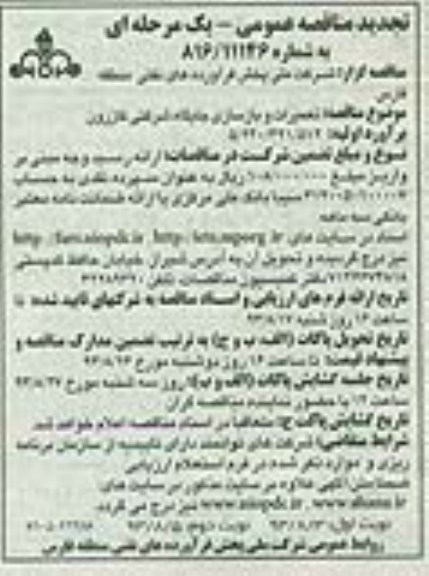 تجدید مناقصه عمومی - یک مرحله ای
به شماره ۸۱۶/۱۱۱۴۶
مناقصه گزار: شرکت ملی پخش فرآورده های نفتی منطقه
فارس
موضوع مناقصه: تعمیرات و بازسازی جایگاه شرکتی کازرون
برآورد اولیه:
نوع و مبلغ تضمین شرکت در مناقصات: ارائه رسید وجه مبنی بر
واریز مبلغ ریال به عنوان سپرده نقدی به حساب
سیبا بانک ملی مرکزی یا ارائه ضمانت نامه معتبر
بانکی سه ماهه
اسناد در سایت های http://iets.mporg.ir http://fars.niopdc.ir
نیز درج گردیده و تحویل آن به آدرس شیراز خیابان حافظ
دفتر کمیسیون مناقصات تلفن
تاریخ ارائه فرم های ارزیابی و اسناد مناقصه به شرکتهای تایید شده: تا
ساعت ۱۶ روز شنبه
تاریخ تحویل پاکات (الف، ب و ج) به ترتیب تضمین مدارک مناقصه و
پیشنهاد قیمت: تا ساعت ۱۶ روز دوشنبه مورخ ۹۳/۸/۲۶
تاریخ جلسه گشایش پاکات (الف و ب): روز سه شنبه مورخ ۹۳/۸/۲۷
ساعت ۱۲ با حضور نماینده مناقصه گران
تاریخ گشایش پاکت ج: متعاقبا در اسناد مناقصه اعلام خواهد شد
شرایط متقاضی: شرکت های توانمند دارای تاییدیه از سازمان برنامه
ریزی و موارد ذکر شده در فرم استعلام ارزیابی
ضمنا متن آگهی علاوه بر سایت مذکور در سایت های
www.niopdc.ir , www.shana.ir نیز درج می گردد.
نوبت اول: ۹۳/۸/۳ نوبت دوم: ۹۳/۸/۵
روابط عمومی شرکت ملی پخش فرآورده های نفتی منطقه فارس